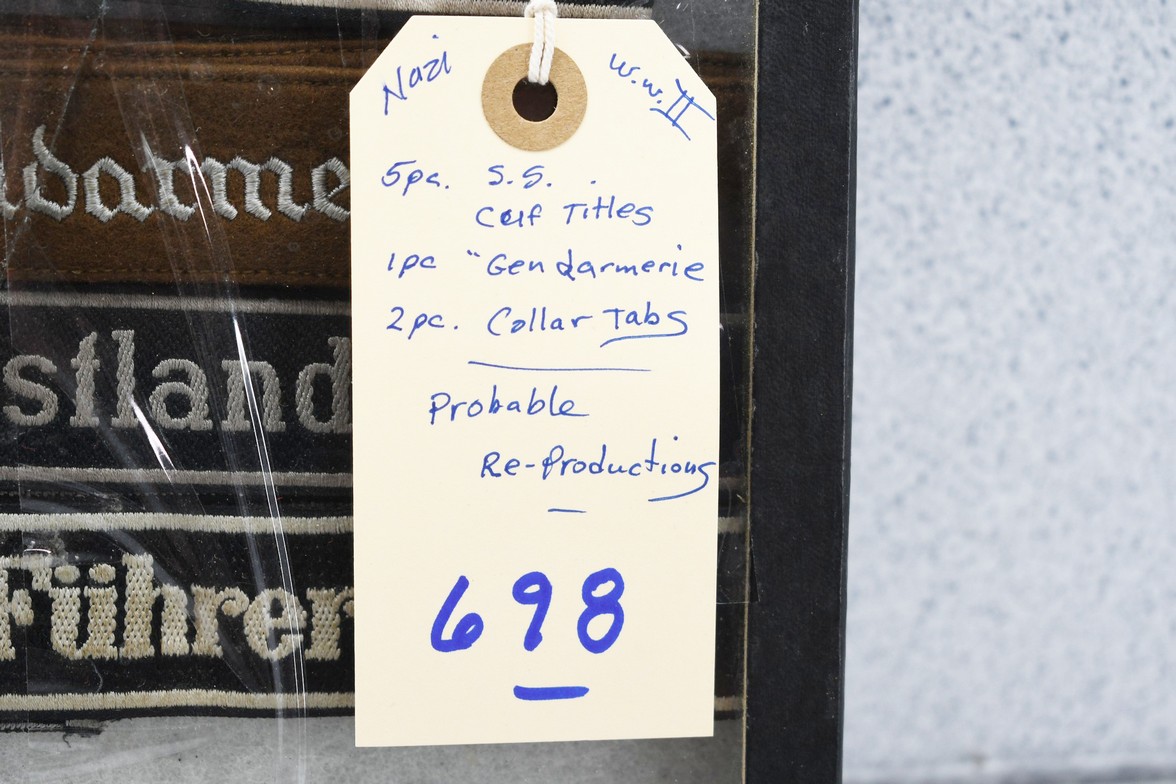 Nazi
W.W.II
5pc. S.S.
Cuf Titles
1pc "Gendarmerie
2pc. Collar Tabs
Probable
Re-Productions
698
darme
stland
Führer